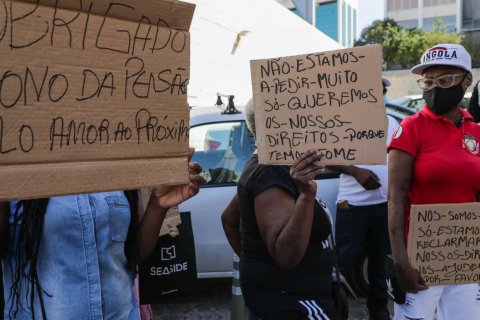 OBRIGADO
DONO DA PENSÃO
LO AMOR AO PRÓXIMO
NÃO-ESTAMOS
A-PEDIR-MUITO
SÓ-QUEREMOS
OS-NOSSOS
DIREITOS-PORQUE
TEMOS FOME
ANGOLA
NOS-SOMOS
SÓ-ESTAMO
RECLAMAR
NOSSOS-DI
NOS-AJUDE
POR-FAVOR
SEASIDE